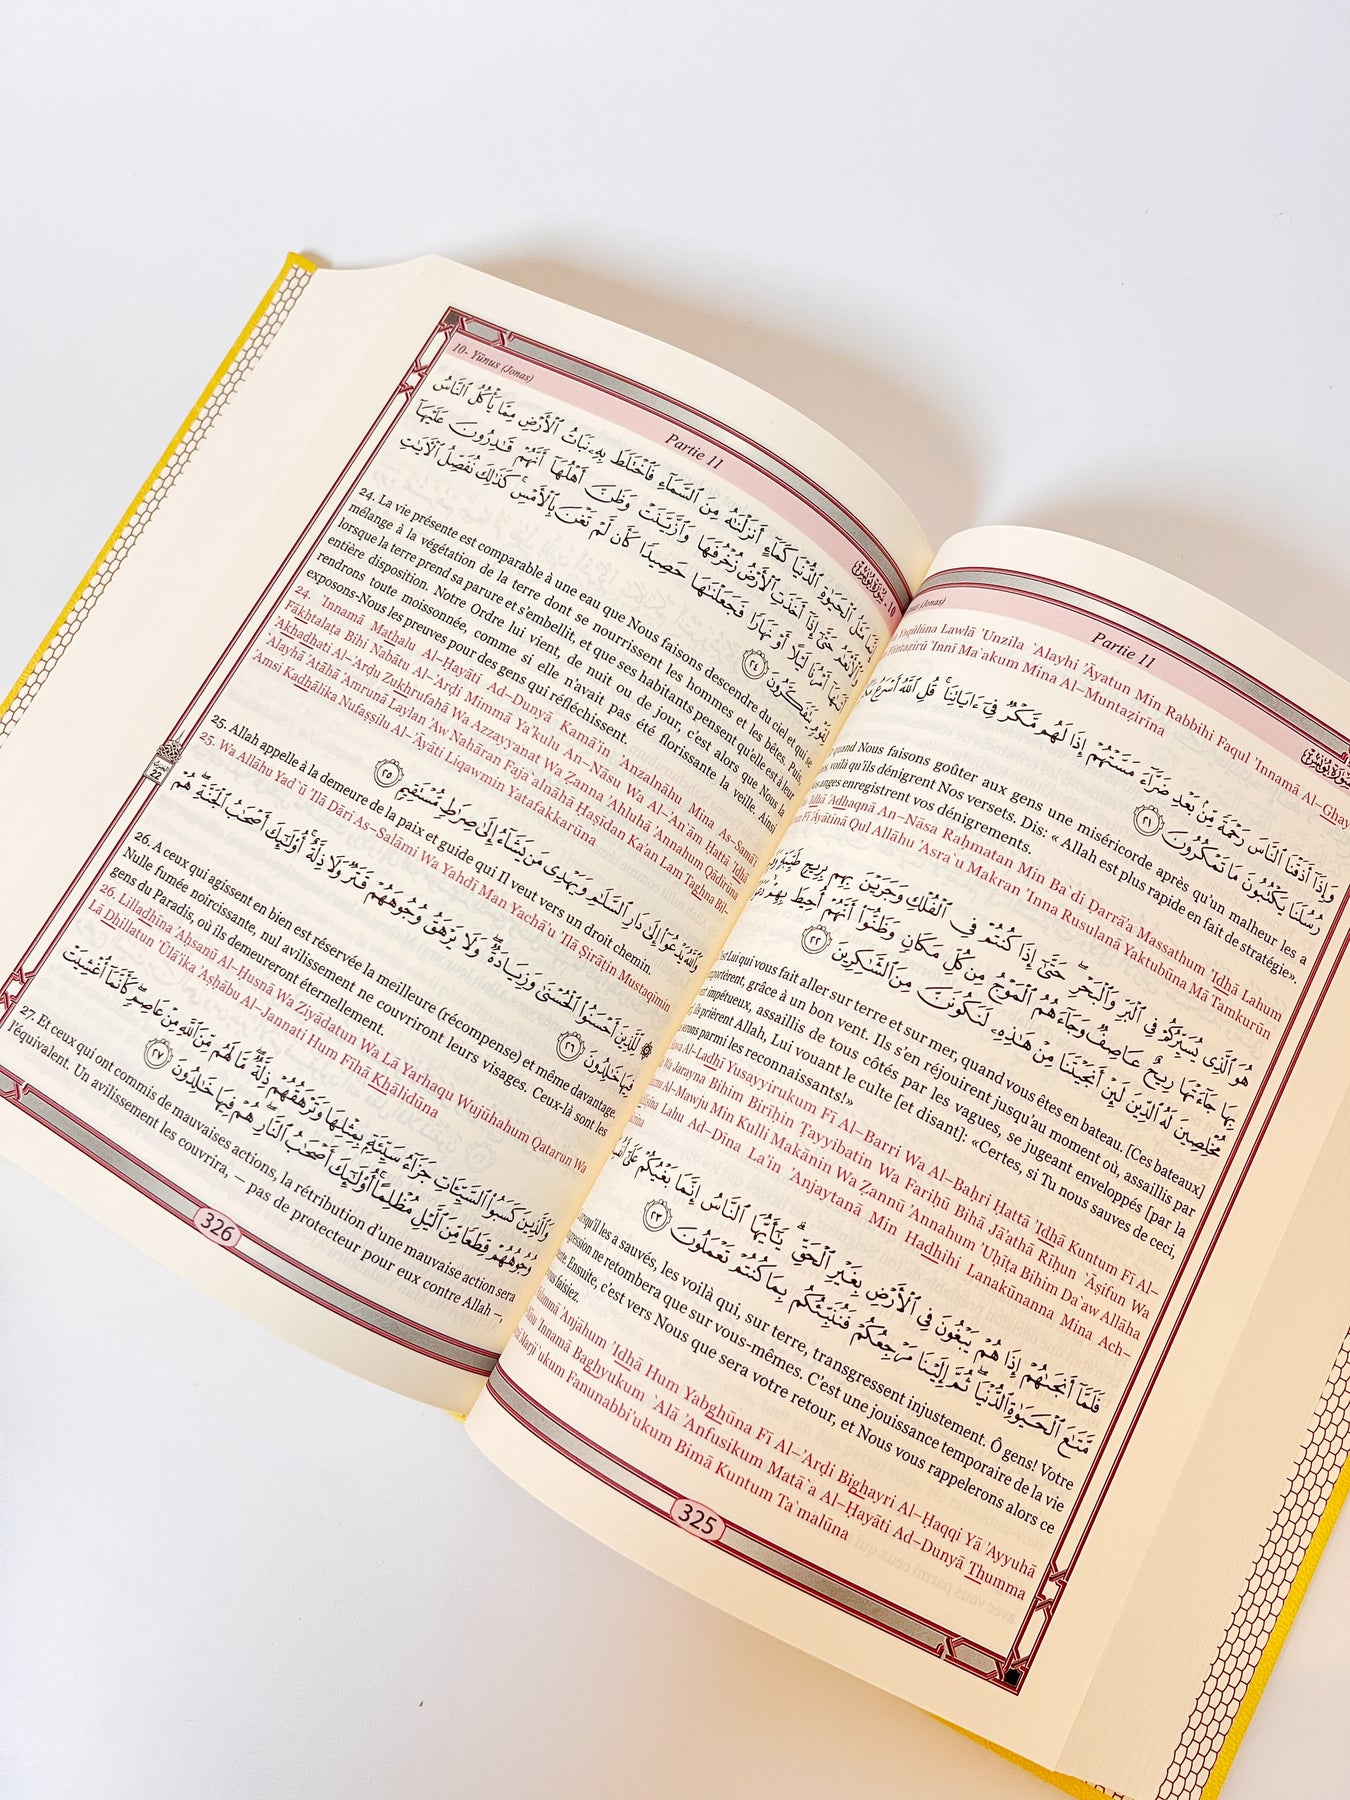 (Jonas)
Partie 11
سُورَةُ يُونُسَ
Yaqūlūna Lawlā 'Unzila `Alayhi 'Āyatun Min Rabbihi Faqul 'Innamā Al–Ghay
Fāntazirū 'Innī Ma`akum Mina Al–Muntazirīna
وَإِذَآ أَذَقْنَا ٱلنَّاسَ رَحْمَةً مِّنۢ بَعْدِ ضَرَّآءَ مَسَّتْهُمْ إِذَا لَهُم مَّكْرٌ فِىٓ ءَايَاتِنَا ۚ قُلِ ٱللَّهُ أَسْرَعُ
رُسُلَنَا يَكْتُبُونَ مَا تَمْكُرُونَ ٢١
quand Nous faisons goûter aux gens une miséricorde après qu'un malheur les a
voilà qu'ils dénigrent Nos versets. Dis: « Allah est plus rapide en fait de stratégie».
anges enregistrent vos dénigrements.
'Idhā Adhaqnā An–Nāsa Raḥmatan Min Ba`di Ḍarrā'a Massathum 'Idhā Lahum
Fī 'Āyātinā Qul Allāhu 'Asra`u Makran 'Inna Rusulanā Yaktubūna Mā Tamkurūn
هُوَ ٱلَّذِى يُسَيِّرُكُمْ فِى ٱلْبَرِّ وَٱلْبَحْرِ ۖ حَتَّىٰٓ إِذَا كُنتُمْ فِى ٱلْفُلْكِ وَجَرَيْنَ بِهِم بِرِيحٍ طَيِّبَةٍ
بِهَا جَآءَتْهَا رِيحٌ عَاصِفٌ وَجَآءَهُمُ ٱلْمَوْجُ مِن كُلِّ مَكَانٍ وَظَنُّوٓا۟ أَنَّهُمْ أُحِيطَ بِهِمْ
مُخْلِصِينَ لَهُ ٱلدِّينَ لَئِنْ أَنجَيْتَنَا مِنْ هَٰذِهِۦ لَنَكُونَنَّ مِنَ ٱلشَّٰكِرِينَ ٢٢
Lui qui vous fait aller sur terre et sur mer, quand vous êtes en bateau. [Ces bateaux]
emportèrent, grâce à un bon vent. Ils s'en réjouirent jusqu'au moment où, assaillis par
vent impétueux, assaillis de tous côtés par les vagues, se jugeant enveloppés [par la
ils prièrent Allah, Lui vouant le culte [et disant]: «Certes, si Tu nous sauves de ceci,
serons parmi les reconnaissants!»
Al–Ladhī Yusayyirukum Fī Al–Barri Wa Al–Baḥri Ḥattā 'Idhā Kuntum Fī Al–
Wa Jarayna Bihim Birīḥin Tayyibatin Wa Fariḥū Bihā Jā'athā Rīḥun `Āṣifun Wa
Al–Mawju Min Kulli Makānin Wa Zannū 'Annahum 'Uḥīṭa Bihim Da`aw Allāha
Lahu Ad–Dīna La'in 'Anjaytanā Min Hadhihi Lanakūnanna Mina Ach–
فَلَمَّآ أَنجَىٰهُمْ إِذَا هُمْ يَبْغُونَ فِى ٱلْأَرْضِ بِغَيْرِ ٱلْحَقِّ ۗ يَٰٓأَيُّهَا ٱلنَّاسُ إِنَّمَا بَغْيُكُمْ عَلَىٰٓ
مَّتَٰعَ ٱلْحَيَوٰةِ ٱلدُّنْيَا ۖ ثُمَّ إِلَيْنَا مَرْجِعُكُمْ فَنُنَبِّئُكُم بِمَا كُنتُمْ تَعْمَلُونَ ٢٣
Lorsqu'il les a sauvés, les voilà qui, sur terre, transgressent injustement. Ô gens! Votre
transgression ne retombera que sur vous-mêmes. C'est une jouissance temporaire de la vie
Ensuite, c'est vers Nous que sera votre retour, et Nous vous rappelerons alors ce
faisiez.
'Anjāhum 'Idhā Hum Yabghūna Fī Al–'Arḍi Bighayri Al–Ḥaqqi Yā 'Ayyuhā
'Innamā Baghyukum `Alā 'Anfusikum Matā`a Al–Ḥayāti Ad–Dunyā Thumma
Marji`ukum Fanunabbi'ukum Bimā Kuntum Ta`malūna
325
10- Yūnus (Jonas)
Partie 11
سُورَةُ يُونُسَ - 10
إِنَّمَا مَثَلُ ٱلْحَيَوٰةِ ٱلدُّنْيَا كَمَآءٍ أَنزَلْنَٰهُ مِنَ ٱلسَّمَآءِ فَٱخْتَلَطَ بِهِۦ نَبَاتُ ٱلْأَرْضِ مِمَّا يَأْكُلُ ٱلنَّاسُ
وَٱلْأَنْعَٰمُ حَتَّىٰٓ إِذَآ أَخَذَتِ ٱلْأَرْضُ زُخْرُفَهَا وَٱزَّيَّنَتْ وَظَنَّ أَهْلُهَآ أَنَّهُمْ قَٰدِرُونَ عَلَيْهَآ
أَتَىٰهَآ أَمْرُنَا لَيْلًا أَوْ نَهَارًا فَجَعَلْنَٰهَا حَصِيدًا كَأَن لَّمْ تَغْنَ بِٱلْأَمْسِ ۚ كَذَٰلِكَ نُفَصِّلُ ٱلْءَايَٰتِ
لِقَوْمٍ يَتَفَكَّرُونَ ٢٤
24. La vie présente est comparable à une eau que Nous faisons descendre du ciel et qui se
mélange à la végétation de la terre dont se nourrissent les hommes et les bêtes. Puis,
lorsque la terre prend sa parure et s'embellit, et que ses habitants pensent qu'elle est à leur
entière disposition. Notre Ordre lui vient, de nuit ou de jour, c'est alors que Nous la
rendrons toute moissonnée, comme si elle n'avait pas été florissante la veille. Ainsi
exposons-Nous les preuves pour des gens qui réfléchissent.
24. 'Innamā Mathalu Al–Ḥayāti Ad–Dunyā Kamā'in 'Anzalnāhu Mina As–Samā'i
Fākhtalaṭa Bihi Nabātu Al–'Arḍi Mimmā Ya'kulu An–Nāsu Wa Al–An`ām Ḥattā 'Idhā
'Akhadhati Al–'Arḍu Zukhrufahā Wa Azzayyanat Wa Zanna 'Ahluhā 'Annahum Qādirūna
`Alayhā 'Atāhā 'Amrunā Laylan 'Aw Nahāran Faja`alnāhā Ḥaṣīdan Ka'an Lam Taghna Bil–
'Amsi Kadhālika Nufaṣṣilu Al–Āyāti Liqawmin Yatafakkarūna
وَٱللَّهُ يَدْعُوٓا۟ إِلَىٰ دَارِ ٱلسَّلَٰمِ وَيَهْدِى مَن يَشَآءُ إِلَىٰ صِرَٰطٍ مُّسْتَقِيمٍ ٢٥
25. Allah appelle à la demeure de la paix et guide qui Il veut vers un droit chemin.
25. Wa Allāhu Yad`ū 'Ilā Dāri As–Salāmi Wa Yahdī Man Yachā'u 'Ilā Ṣirāṭin Mustaqīmin
22
لِّلَّذِينَ أَحْسَنُوا۟ ٱلْحُسْنَىٰ وَزِيَادَةٌ ۖ وَلَا يَرْهَقُ وُجُوهَهُمْ قَتَرٌ وَلَا ذِلَّةٌ ۚ أُو۟لَٰٓئِكَ أَصْحَٰبُ ٱلْجَنَّةِ ۖ هُمْ
فِيهَا خَٰلِدُونَ ٢٦
26. A ceux qui agissent en bien est réservée la meilleure (récompense) et même davantage.
Nulle fumée noircissante, nul avilissement ne couvriront leurs visages. Ceux-là sont les
gens du Paradis, où ils demeureront éternellement.
26. Lilladhīna 'Aḥsanū Al–Ḥusnā Wa Ziyādatun Wa Lā Yarhaqu Wujūhahum Qatarun Wa
Lā Dhillatun 'Ūlā'ika 'Aṣḥābu Al–Jannati Hum Fīhā Khālidūna
وَٱلَّذِينَ كَسَبُوا۟ ٱلسَّيِّـَٔاتِ جَزَآءُ سَيِّئَةٍۭ بِمِثْلِهَا وَتَرْهَقُهُمْ ذِلَّةٌ ۖ مَّا لَهُم مِّنَ ٱللَّهِ مِنْ عَاصِمٍ ۖ كَأَنَّمَآ أُغْشِيَتْ
وُجُوهُهُمْ قِطَعًا مِّنَ ٱلَّيْلِ مُظْلِمًا ۚ أُو۟لَٰٓئِكَ أَصْحَٰبُ ٱلنَّارِ ۖ هُمْ فِيهَا خَٰلِدُونَ ٢٧
27. Et ceux qui ont commis de mauvaises actions, la rétribution d'une mauvaise action sera
l'équivalent. Un avilissement les couvrira, — pas de protecteur pour eux contre Allah –,
326